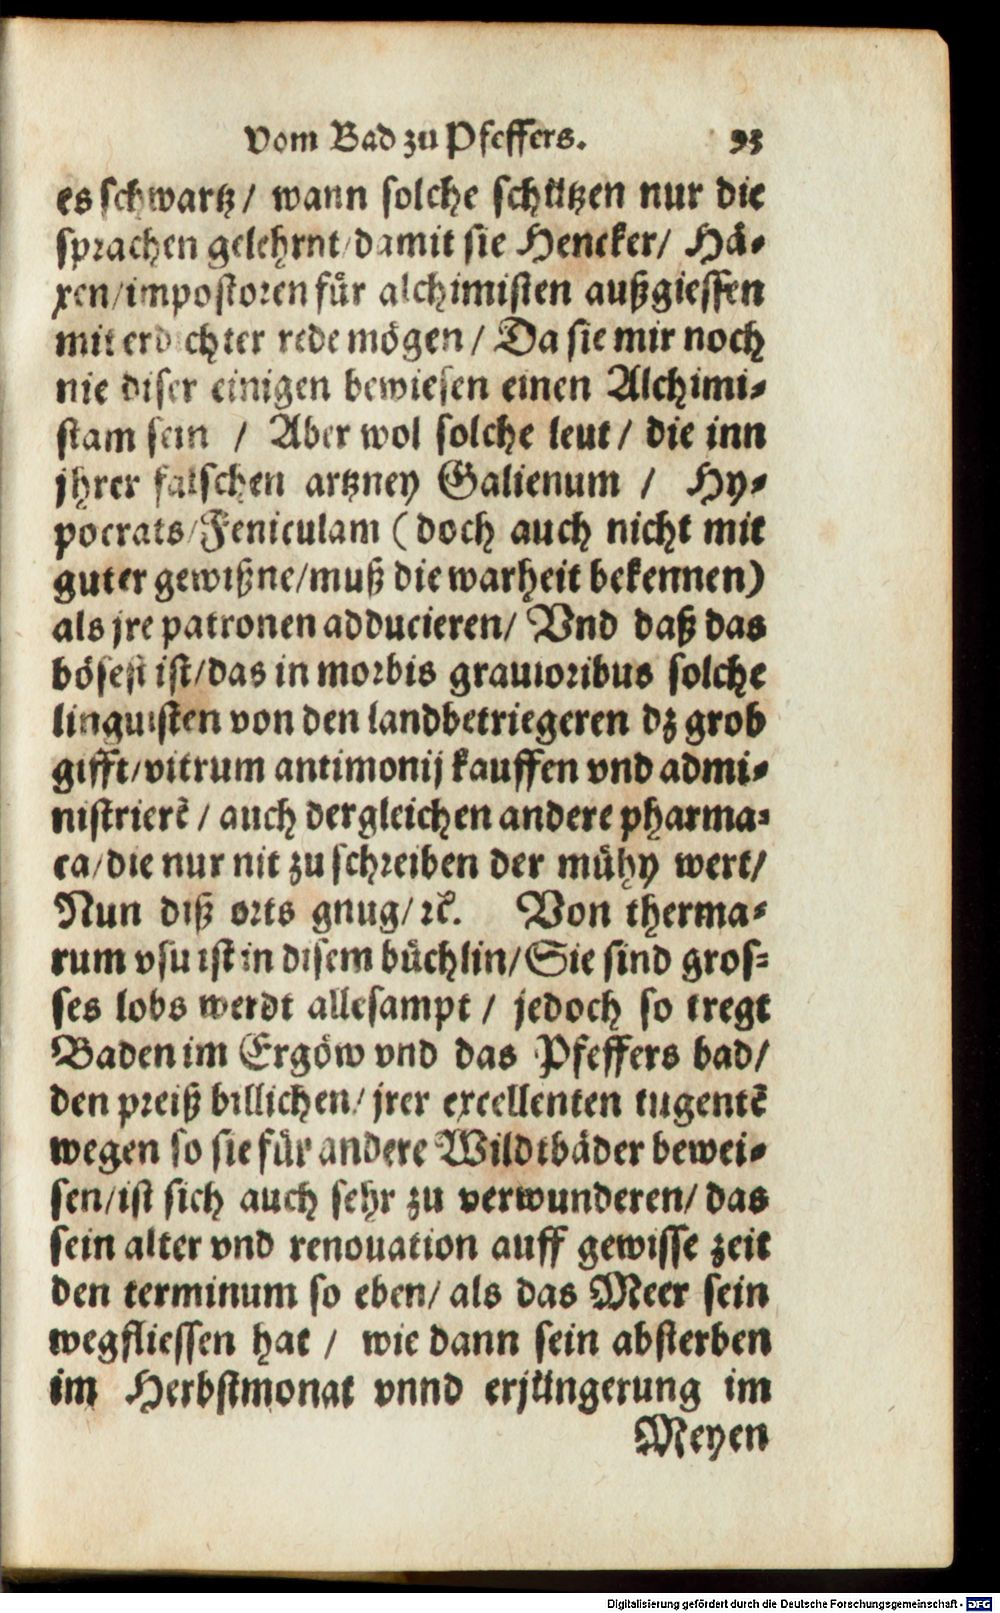 Vom Bad zu Pfeffers. 93
es schwartz/ wann solche schützen nur die
sprachen gelehrnt/damit sie Hencker/ Hä-
xen/impostoren für alchimisten außgiessen
mit erdichter rede mögen / Da sie mir noch
nie diser einigen bewiesen einen Alchimi-
stam sein / Aber wol solche leut / die inn
jhrer falschen artzney Galienum / Hy-
pocrats/Feniculam (doch auch nicht mit
guter gewißne/muß die warheit bekennen)
als jre patronen adducieren/ Vnd daß das
bösest ist/das in morbis grauioribus solche
linguisten von den landbetriegeren dz grob
gifft/vitrum antimonij kauffen vnd admi-
nistrierē / auch dergleichen andere pharma-
ca/die nur nit zu schreiben der mühy wert/
Nun diß orts gnug/ ꝛc. Von therma-
rum vsu ist in disem büchlin/Sie sind gros-
ses lobs werdt allesampt / jedoch so tregt
Baden im Ergöw vnd das Pfeffers bad/
den preiß billichen/ jrer excellenten tugentē
wegen so sie für andere Wildtbäder bewei-
sen/ist sich auch sehr zu verwunderen/ das
sein alter vnd renouation auff gewisse zeit
den terminum so eben/ als das Meer sein
wegfliessen hat / wie dann sein absterben
im Herbstmonat vnnd erjüngerung im
Meyen
Digitalisierung gefördert durch die Deutsche Forschungsgemeinschaft - DFG